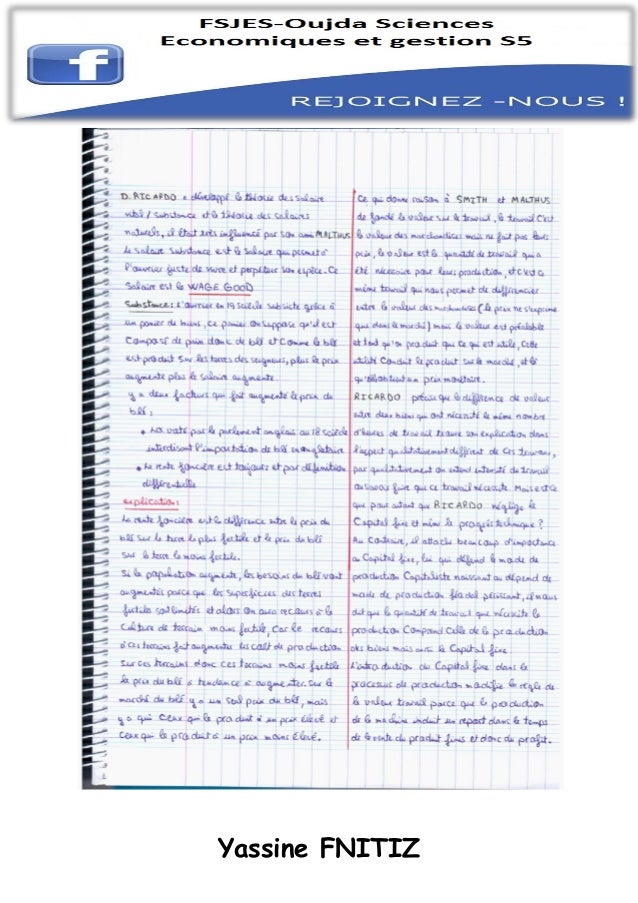 FSJES-Oujda Sciences
Economiques et gestion S5
REJOIGNEZ -NOUS !
D. RICARDO a développé la théorie des salaire
vital / substance et la théorie des salaires
naturels, il était très influencé par son ami MALTHUS
le salaire substance est le salaire qui permet à
l'ouvrier juste de vivre et perpétuer son espèce. Ce
Salaire est le WAGE GOOD
Substance: L'ouvrier en 19 siècle subsiste grâce à
un panier de biens, ce panier on suppose qu'il est
Composé de pain donc de blé et comme le blé
est produit sur les terres des seigneurs, plus le prix
augmente plus le salaire augmente.
y a deux facteurs qui fait augmenté le prix du
blé :
• Loi voté par le parlement anglais au 18 siècle
interdisant l'importation de blé en angletaire
• La rente foncière est toujours et par définition
différentielle
explication:
La rente foncière est la différence entre le prix du
blé sur la terre la plus fertile et le prix du blé
sur la terre la moins fertile.
Si la population augmente, les besoins du blé vont
augmentés parce que les superficies des terres
fertiles sont limités et alors on aura recours à la
Culture de terrain moins fertile, Car le recours
à ces terrains fait augmenter les coût de production
Sur ces terrains donc ces terrains moins fertile
le prix du blé a tendance à augmenter. Sur le
marché du blé y a un seul prix du blé, mais
y a qui ceux qui le produit à un prix élevé et
Ceux qui le produit à un prix moins élevé.
Ce qui donne raison à SMITH et MALTHUS
de fondé la valeur sur le travail, le travail C'est
la valeur des marchandises mais ne fait pas leurs
prix, la valeur est la quantité de travail qui a
été nécessaire pour leurs production, et c'est ce
même travail qui nous permet de différencier
entre la valeur des marchandises (le prix ne s'exprime
que dans le marché) mais la valeur est préalable
et tant qu'on produit que ce qui est utile, Cette
utilité Conduit le produit sur le marché, et là
qu'il obtient un prix monétaire.
RICARDO précise que la différence de valeur
entre deux biens qui ont nécessité le même nombre
d'heures de travail trouve son explication dans
l'aspect qualitativement différent de Ces travaux,
par qualitativement on entend intensité de travail
ou savoir faire que ce travail nécessite. Mais est ce
que pour autant que RICARDO néglige le
Capital fixe et même le progrès technique ?
Au Contraire, il attache beaucoup d'importance
au Capital fixe, lui qui défend le mode de
production Capitaliste naissant au dépend de
mode de production féodal périssant, il nous
dit que la quantité de travail que nécessite la
production Comprend Celle de la production
des biens mais aussi le Capital fixe
L'introduction du Capital fixe dans le
processus de production modifie la règle de
la valeur travail parce que la production
de la machine induit un report dans le temps
de la vente du produit finis et donc du profit.
Yassine FNITIZ